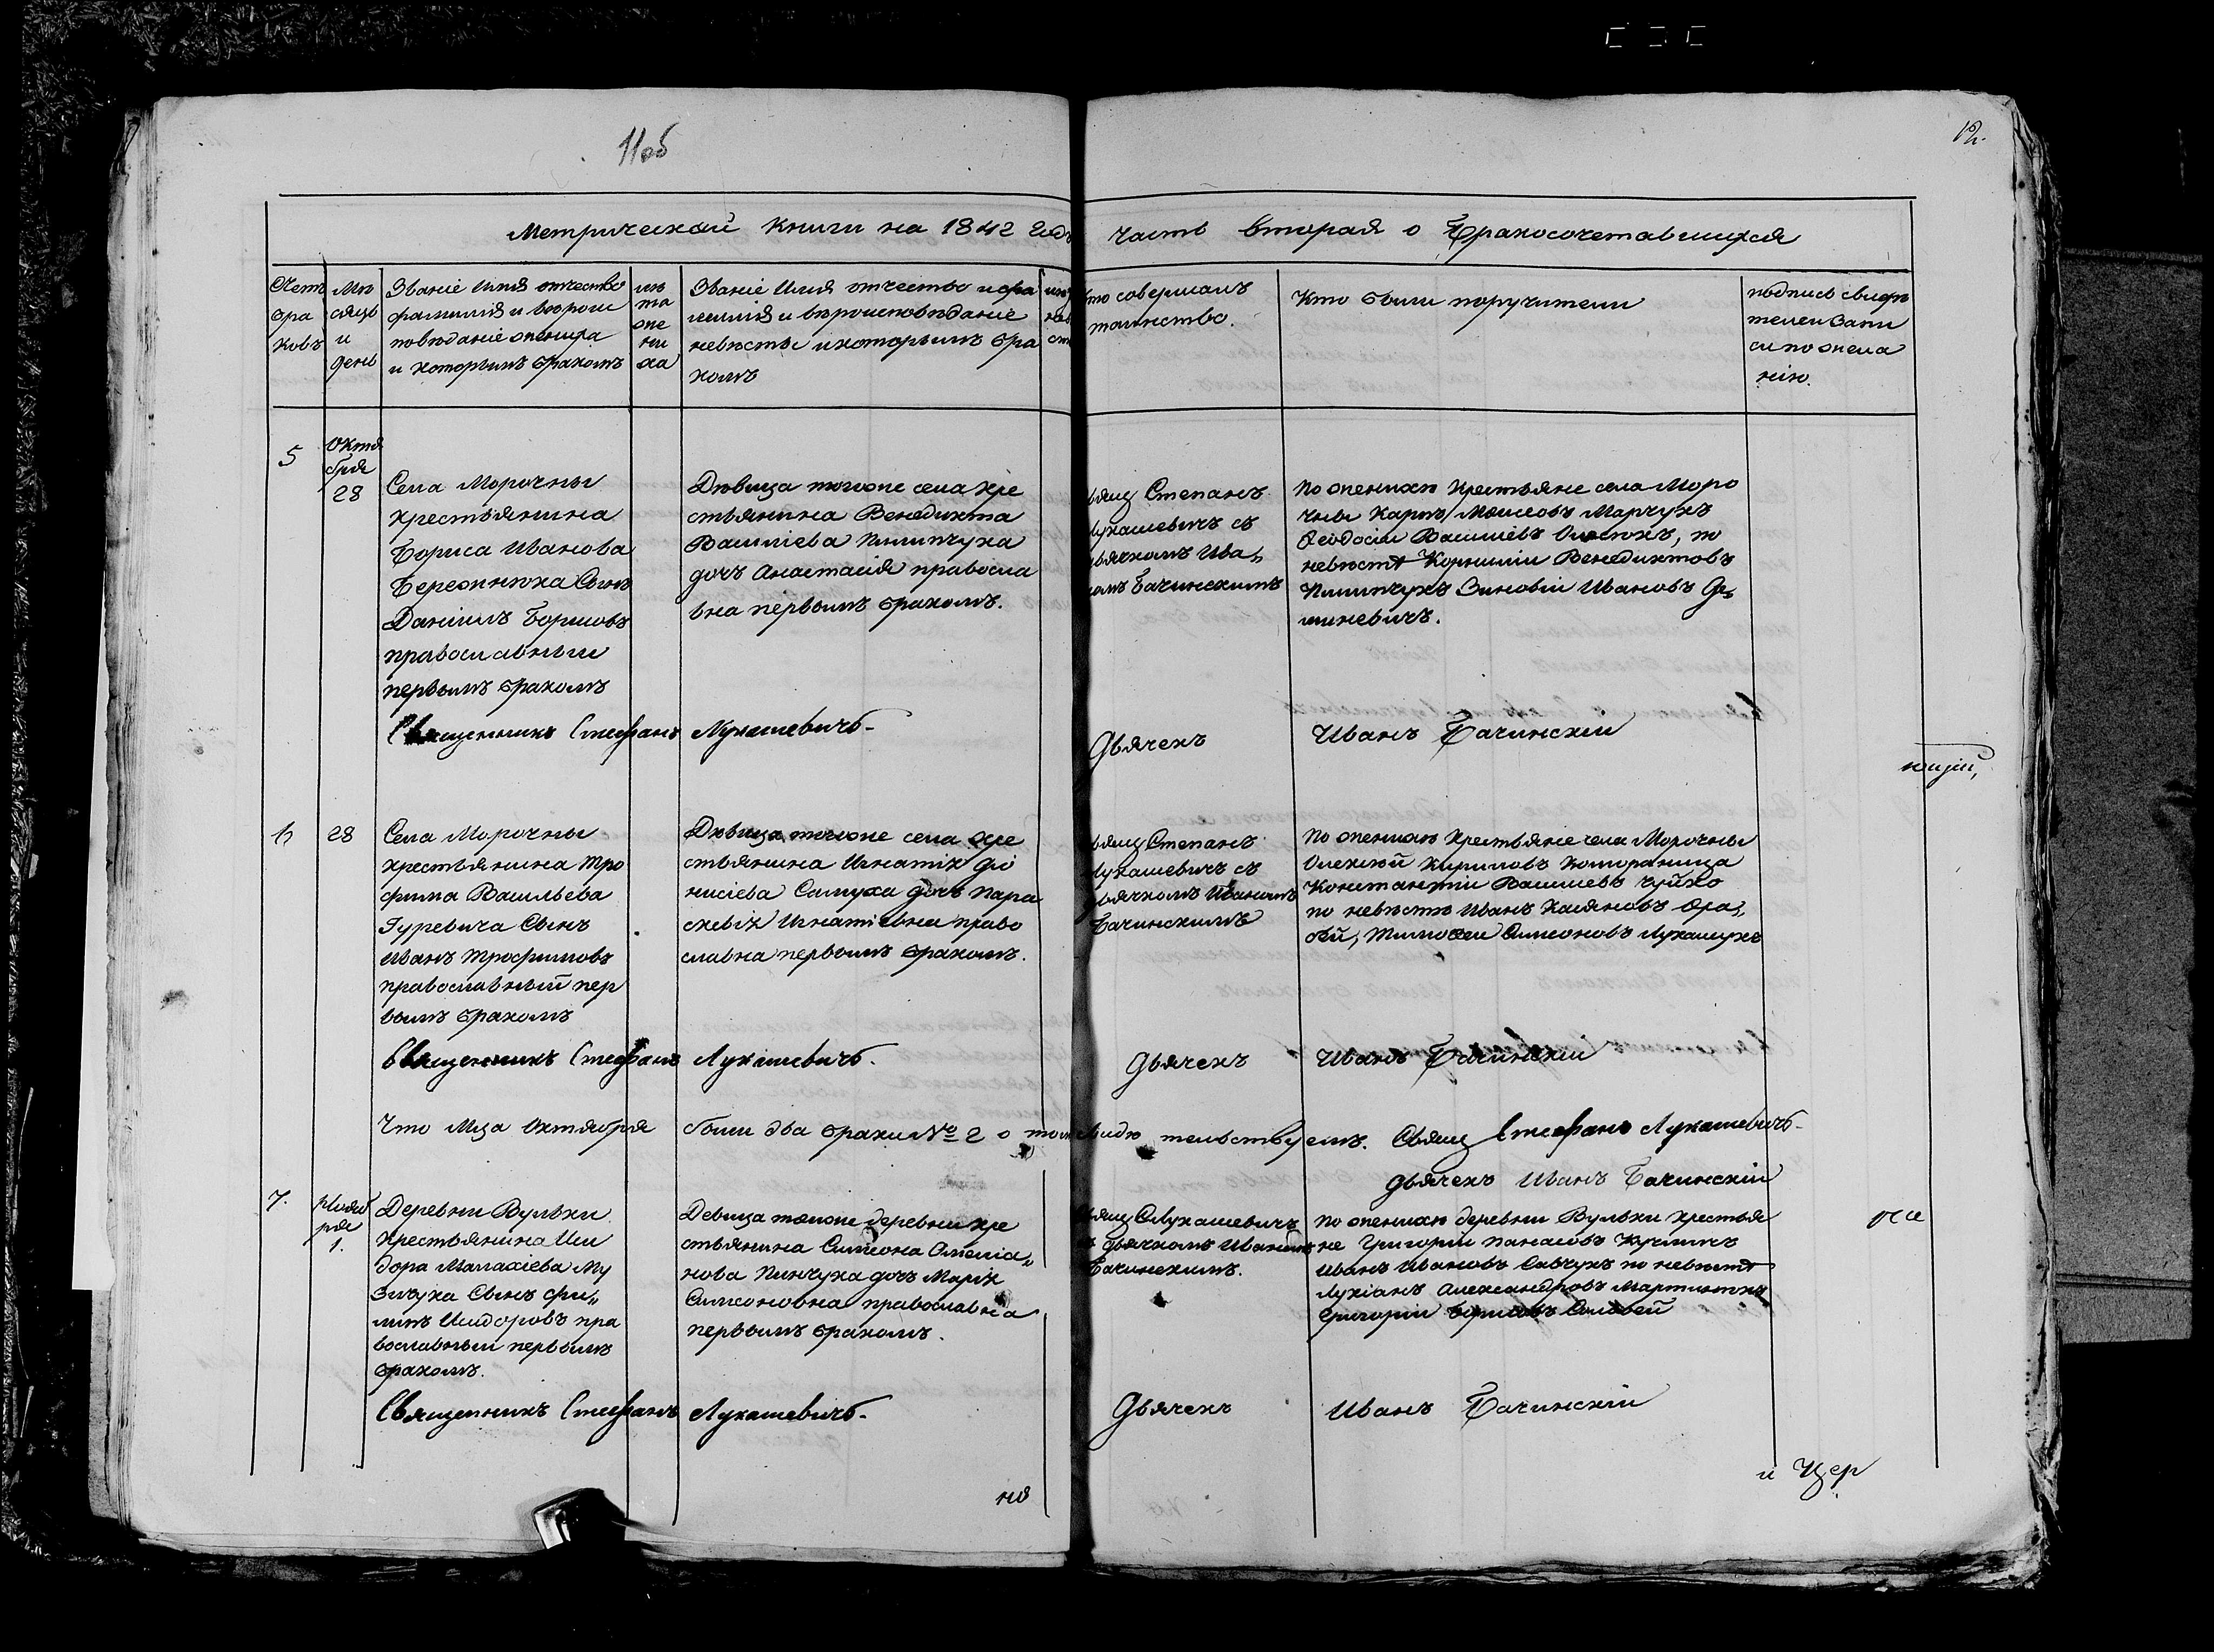 11об
12.
Метрической Книги на 1842 Годъ часть вторая о Бракосочетавшихся
Счетъ
бра
ковъ
Мѣ
сяцъ
и
день
Званіе Имя отчество
фамилія и вѣроис
повѣданіе жениха
и которымъ бракомъ
лѣ
та
же
ни
ха
Званіе Имя отчество и фа
милия и вѣроисповѣданіе
невѣсты и которымъ бра
комъ
Кто совершалъ
таинство.
Кто были поручители
подпись свидѣ
телей Запи
си по жела
нію.
5
Октя
бря
28
Села Морочны
Крестьянина
Бориса Иванова
Сынъ
Даніилъ Борисовъ
православный
первымъ бракомъ
Дѣвица тогоже села кре
стьянина Венедикта
Василіева Пилипчука
дочь Анастасія правосла
вна первымъ бракомъ.
Свящ Степанъ
Лукашевичъ съ
дьячкомъ Ива„
номъ Бачинскимъ
По женихѣ Крестьяне села Моро
чны Карпъ Моисеовъ Марчукъ
Феодосій Василіевъ, по
невѣстѣ Корнилій Венедиктовъ
Пилипчукъ Зиновій Ивановъ Де„
миневичъ.
Священникъ Стефанъ Лукашевичъ-
Дьячекъ Иванъ Бачинскій
ющій,
6
28
Села Морочны
крестьянина Тро
фима Васильева
Гуревича Сынъ
Иванъ Трофимовъ
православный пер
вымъ бракомъ
Дѣвица тогоже села кре
стьянина Игнатія Діо
нисіева Самуха дочь Пара
скевія Игнатіевна право
славна первымъ бракомъ.
Свящ Степанъ
Лукашевичъ съ
дьячкомъ Иваномъ
Бачинскимъ
По женихѣ Крестьяне села Морочны
Олексѣй Кириловъ Комораница
Константій Василіевъ Чуйко
по невѣстѣ Иванъ Касяновъ
Тимофей Симеоновъ Лукашукъ
Священникъ Стефанъ Лукашевичъ.
Дьячекъ Иванъ Бачинскій
Что Мца Октября были два браки № 2 о томъ свидѣтельствуемъ. Свящ Стефанъ Лукашевичъ-
Дьячекъ Иванъ Бачинскій
7.
Нояб
ря
1.
Деревни Вульки
Крестьянина Иси
дора Малахіева Му
зычука Сынъ Фи„
липъ Исидоровъ пра
вославный первымъ
бракомъ.
Девица тогоже деревни кре
стьянина Симеона Омелія„
нова Пинчука дочь Марія
Симеоновна православна
первымъ бракомъ.
Свящ С Лукашевичъ
съ дьячкомъ Иваномъ
Бачинскимъ.
По женихѣ деревни Вульки крестья
не Григорій Панасовъ
Иванъ Ивановъ Савчукъ по невѣстѣ
Лукіанъ Александровъ Мартинюкъ
Григорій Борисовъ
Священникъ Стефанъ Лукашевичъ-
Дьячекъ Иванъ Бачинскій
но
и Цер